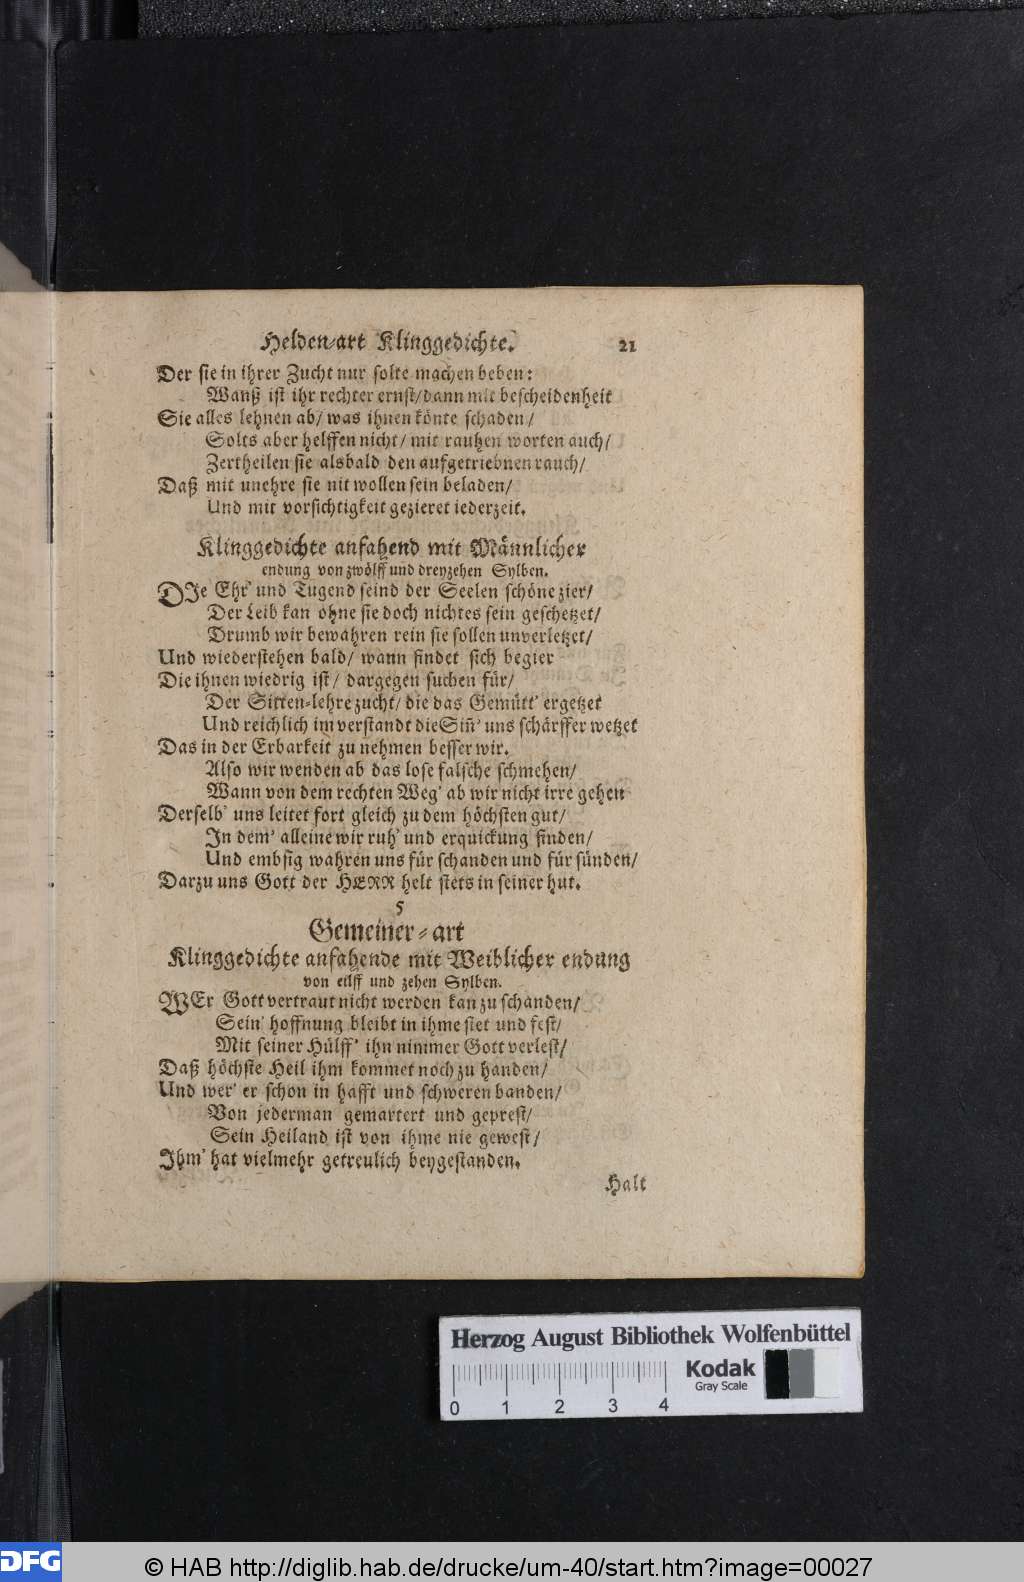 Helden-art Klinggedichte. 21
Der sie in ihrer Zucht nur solte machen beben:
Wanß ist ihr rechter ernst/ dann mit bescheidenheit
Sie alles lehnen ab/ was ihnen könte schaden/
Solts aber helffen nicht/ mit rauhen worten auch/
Zertheilen sie alsbald den aufgetriebnen rauch/
Daß mit unehre sie nit wollen sein beladen/
Und mit vorsichtigkeit gezieret iederzeit.
Klinggedichte anfahend mit Männlicher
endung von zwölff und dreyzehen Sylben.
DJe Ehr' und Tugend seind der Seelen schöne zier/
Der Leib kan ohne sie doch nichtes sein geschetzet/
Drumb wir bewahren rein sie sollen unverletzet/
Und wiederstehen bald/ wann findet sich begier
Die ihnen wiedrig ist/ dargegen suchen für/
Der Sitten-lehre zucht/ die das Gemütt' ergetzet
Und reichlich im verstandt die Sin̄' uns schärffer wetzet
Das in der Erbarkeit zu nehmen besser wir.
Also wir wenden ab das lose falsche schmehen/
Wann von dem rechten Weg' ab wir nicht irre gehen
Derselb' uns leitet fort gleich zu dem höchsten gut/
In dem' alleine wir ruh' und erquickung finden/
Und embsig wahren uns für schanden und für sünden/
Darzu uns Gott der HERR helt stets in seiner hut.
5
Gemeiner-art
Klinggedichte anfahende mit Weiblicher endung
von eilff und zehen Sylben.
WEr Gott vertraut nicht werden kan zu schanden/
Sein' hoffnung bleibt in ihme stet und fest/
Mit seiner Hülff' ihn nimmer Gott verlest/
Daß höchste Heil ihm kommet noch zu handen/
Und wer' er schon in hafft und schweren banden/
Von jederman gemartert und geprest/
Sein Heiland ist von ihme nie gewest/
Ihm' hat vielmehr getreulich beygestanden.
Halt
Herzog August Bibliothek Wolfenbüttel
Kodak
Gray Scale
0 1 2 3 4
DFG
© HAB http://diglib.hab.de/drucke/um-40/start.htm?image=00027